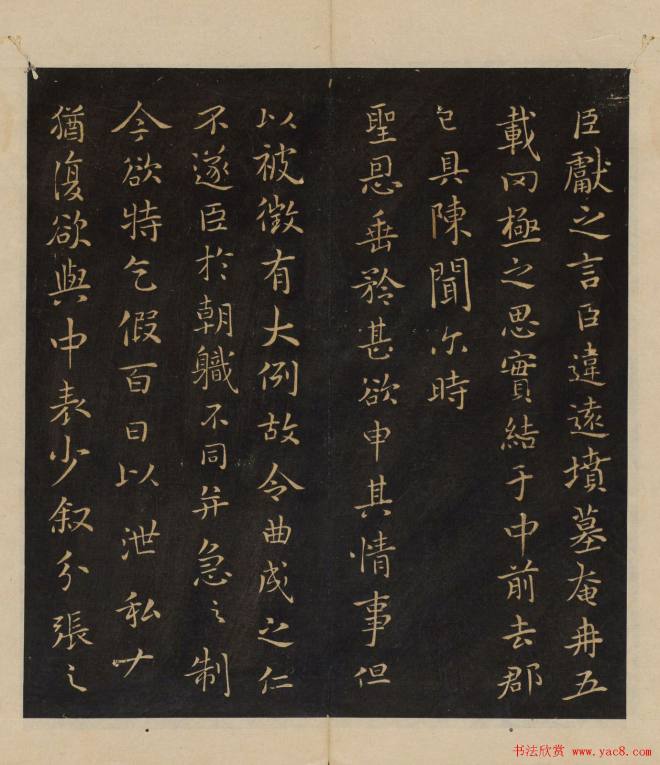 臣獻之言臣違遠墳墓奄冉五
載罔極之思實結于中前去郡
已具陳聞尒時
聖恩垂矜甚欲申其情事但
以被徵有大例故令曲成之仁
不遂臣於朝職不同并急之制
今欲特乞假百日以泄私
猶復欲與中表少叙分張之
书法欣赏 www.yac8.com